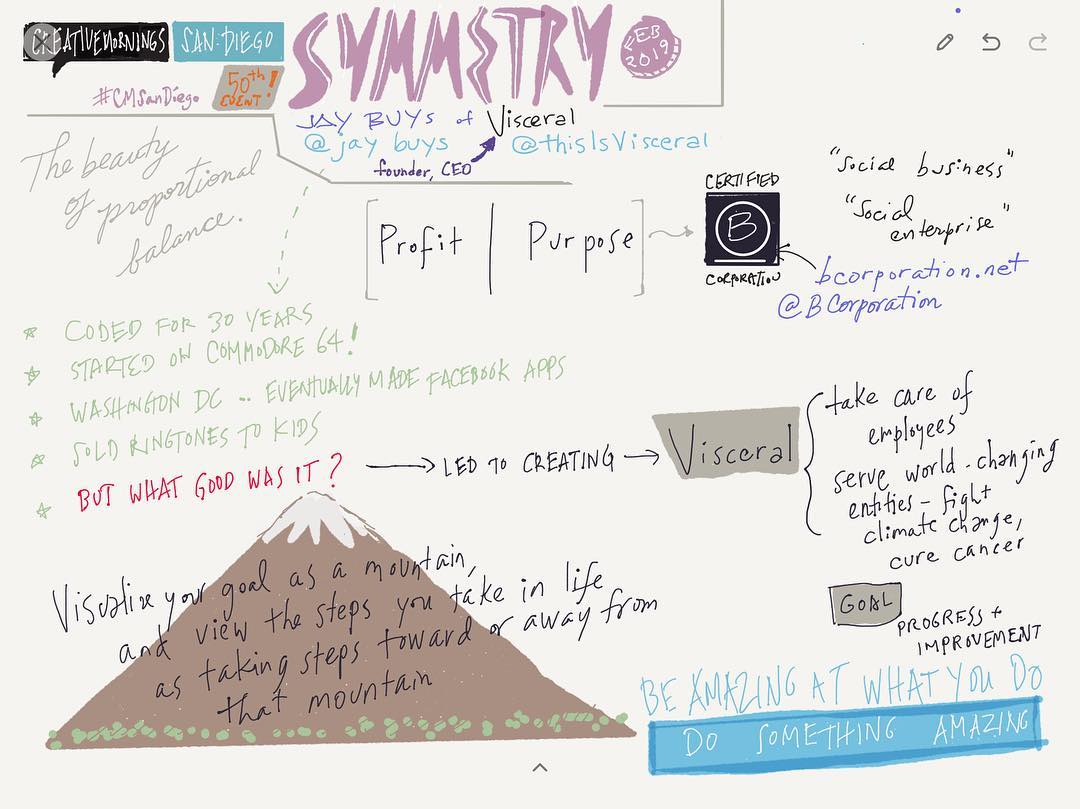 CREATIVEMORNINGS SAN·DIEGO
SYMMETRY
FEB 2019
#CMSanDiego
50th! EVENT!
JAY BUYS of Visceral
@jay buys @thisIsVisceral
founder, CEO
The beauty
of proportional
balance.
Profit | Purpose
CERTIFIED
B
CORPORATION
"Social business"
"Social
enterprise"
bcorporation.net
@BCorporation
CODED FOR 30 YEARS
STARTED ON COMMODORE 64!
WASHINGTON DC .. EVENTUALLY MADE FACEBOOK APPS
SOLD RINGTONES TO KIDS
BUT WHAT GOOD WAS IT? → LED TO CREATING → Visceral
take care of
employees
serve world-changing
entities - fight
climate change,
cure cancer
Visualize your goal as a mountain,
and view the steps you take in life
as taking steps toward or away from
that mountain
GOAL
PROGRESS +
IMPROVEMENT
BE AMAZING AT WHAT YOU DO
DO SOMETHING AMAZING